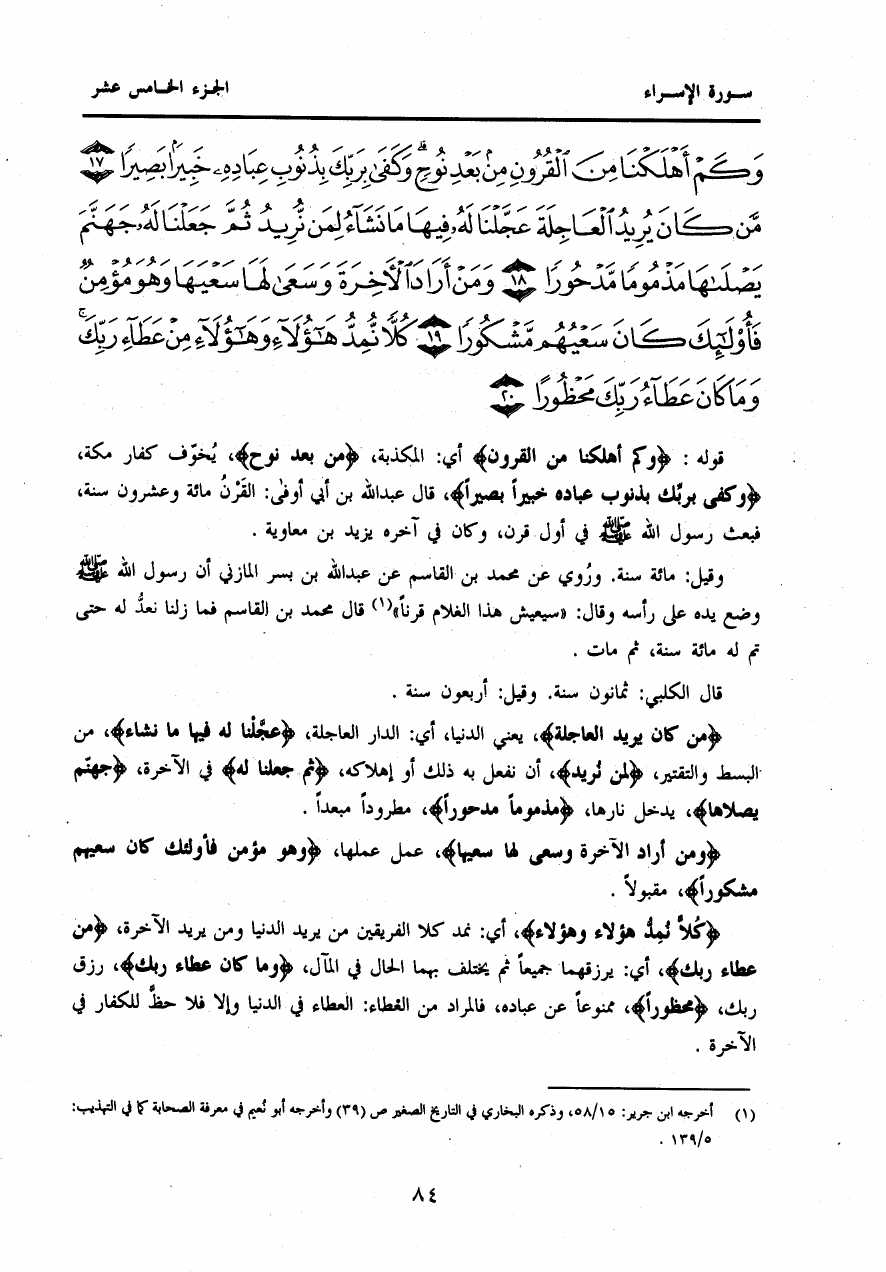 سورة الإسراء
الجزء الخامس عشر
وَكَمْ أَهْلَكْنَا مِنَ ٱلْقُرُونِ مِنۢ بَعْدِ نُوحٍ ۗ وَكَفَىٰ بِرَبِّكَ بِذُنُوبِ عِبَادِهِۦ خَبِيرًۢا بَصِيرًا ١٧
مَّن كَانَ يُرِيدُ ٱلْعَاجِلَةَ عَجَّلْنَا لَهُۥ فِيهَا مَا نَشَآءُ لِمَن نُّرِيدُ ثُمَّ جَعَلْنَا لَهُۥ جَهَنَّمَ
يَصْلَىٰهَا مَذْمُومًا مَّدْحُورًا ١٨ وَمَنْ أَرَادَ ٱلْأَخِرَةَ وَسَعَىٰ لَهَا سَعْيَهَا وَهُوَ مُؤْمِنٌ
فَأُو۟لَٰٓئِكَ كَانَ سَعْيُهُم مَّشْكُورًا ١٩ كُلًّا نُّمِدُّ هَٰٓؤُلَآءِ وَهَٰٓؤُلَآءِ مِنْ عَطَآءِ رَبِّكَ ۚ
وَمَا كَانَ عَطَآءُ رَبِّكَ مَحْظُورًا ٢٠
قوله : ﴿وكم أهلكنا من القرون﴾ أي: المكذبة، ﴿من بعد نوح﴾، يُخوّف كفار مكة،
﴿وكفى بربّك بذنوب عباده خبيراً بصيراً﴾، قال عبدالله بن أبي أوفىٰ: القَرْنُ مائة وعشرون سنة،
فبعث رسول الله ﷺ في أول قرن، وكان في آخره يزيد بن معاوية .
وقيل: مائة سنة. ورُوي عن محمد بن القاسم عن عبدالله بن بسر المازني أن رسول الله ﷺ
وضع يده على رأسه وقال: «سيعيش هذا الغلام قرناً»(١) قال محمد بن القاسم فما زلنا نعدُّ له حتى
تم له مائة سنة، ثم مات .
قال الكلبي: ثمانون سنة. وقيل: أربعون سنة .
﴿من كان يريد العاجلة﴾، يعني الدنيا، أي: الدار العاجلة، ﴿عجَّلْنا له فيها ما نشاء﴾، من
البسط والتقتير، ﴿لمن نُريد﴾، أن نفعل به ذلك أو إهلاكه، ﴿ثم جعلنا له﴾ في الآخرة، ﴿جهنّم
يصلاها﴾، يدخل نارها، ﴿مذموماً مدحوراً﴾، مطروداً مبعداً .
﴿ومن أراد الآخرة وسعى لها سعيها﴾، عمل عملها، ﴿وهو مؤمن فأولئك كان سعيهم
مشكوراً﴾، مقبولاً .
﴿كُلاًّ نُمِدُّ هؤلاء وهؤلاء﴾، أي: نمد كلا الفريقين من يريد الدنيا ومن يريد الآخرة، ﴿من
عطاء ربك﴾، أي: يرزقهما جميعاً ثم يختلف بهما الحال في المآل، ﴿وما كان عطاء ربك﴾، رزق
ربك، ﴿محظوراً﴾، ممنوعاً عن عباده، فالمراد من العَطاء: العطاء في الدنيا وإلا فلا حظَّ للكفار في
الآخرة .
(١) أخرجه ابن جرير: ٥٨/١٥، وذكره البخاري في التاريخ الصغير ص (٣٩) وأخرجه أبو نُعيم في معرفة الصحابة كما في التهذيب:
١٣٩/٥ .
٨٤